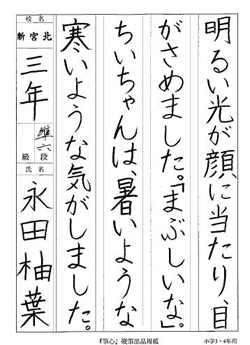 明るい光が顔に当たり、目
がさめました。「まぶしいな。」
ちいちゃんは、暑いような
寒いような気がしました。
校名
新宮北
三年
準六
級 段
氏名
永田柚葉
『筆心』硬筆出品用紙
小学3・4年用